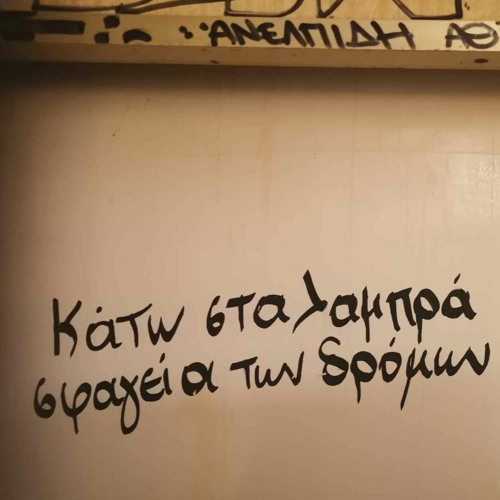 ΑΝΕΛΠΙΔΗ ΑΘ
Κάτω στα λαμπρά
σφαγεία των δρόμων